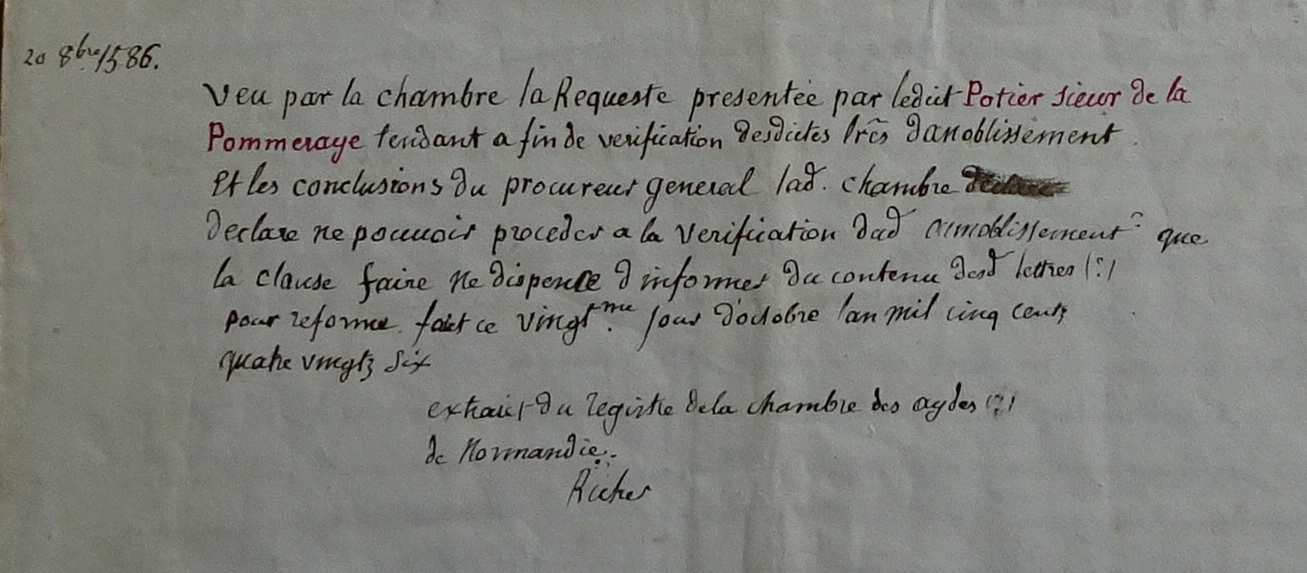 20 8bre 1586.
Veu par la chambre la Requeste presenteé par ledict Potier sieur de la
Pommeraye tendant a fin de verification desdictes lrẽs danoblissement.
Et les conclusions du procureur general lad. chambre declare
declare ne pouvoir proceder a la verification dud anoblissement que
la clause faire ne dispence d'informer du contenu desd lettres (?)
pour reforme. faict ce vingt.me jour d'octobre l'an mil cinq centz
quatre vingtz six
extraict du registre de la chambre des aydes (?)
de Normandie.
Richer